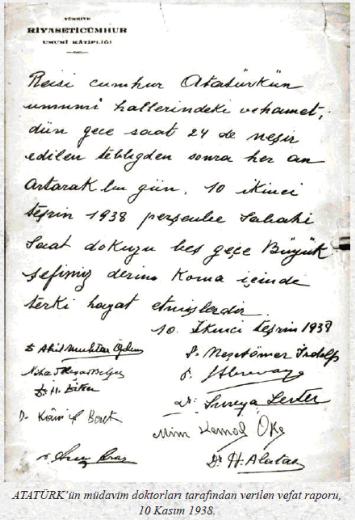 TÜRKİYE
RİYASETİCÜMHUR
UMUMİ KÂTİPLİĞİ
Reisi cumhur Atatürkün
umumi hallerindeki vehamet,
dün gece saat 24 de neşir
edilen tebligden sonra her an
artarak bu gün, 10 ikinci
teşrin 1938 perşembe sabahi
saat dokuzu beş geçe Büyük
şefimiz derin koma içinde
terki hayat etmişlerdir.
10. İkinci teşrin 1938
Dr Akil Muhtar Özden
Dr. Neşetömer İrdelp
Dr. Süreya Serter
Mim Kemal Öke
Dr. H. Alataş
ATATÜRK'ün müdavim doktorları tarafından verilen vefat raporu,
10 Kasım 1938.